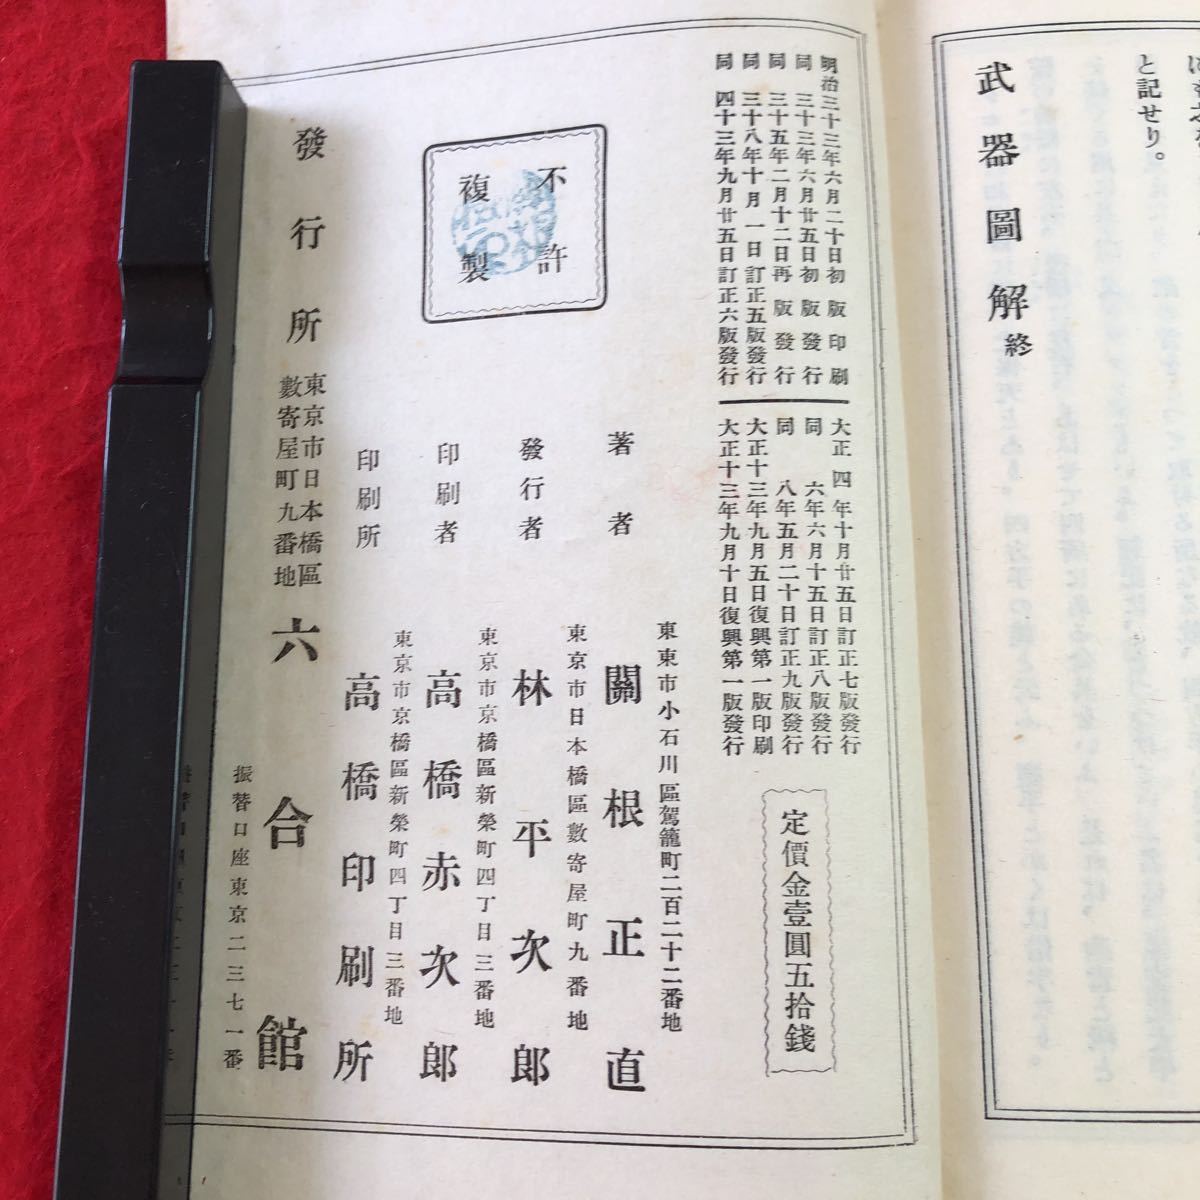 と記せり。
武器圖解終
明治三十三年六月二十日初版印刷
同三十三年六月廿五日初版發行
同三十五年二月十二日再版發行
同三十八年十月一日訂正五版發行
同四十三年九月廿五日訂正六版發行
大正四年十月廿五日訂正七版發行
同六年六月十五日訂正八版發行
同八年五月二十日訂正九版發行
大正十三年九月五日復興第一版印刷
大正十三年九月十日復興第一版發行
定價金壹圓五拾錢
不許
複製
東東市小石川區駕籠町二百二十二番地
著者 關根正直
東京市日本橋區數寄屋町九番地
發行者 林平次郎
東京市京橋區新榮町四丁目三番地
印刷者 高橋赤次郎
東京市京橋區新榮町四丁目三番地
印刷所 高橋印刷所
發行所
東京市日本橋區
數寄屋町九番地
六合館
振替口座東京二三七一番